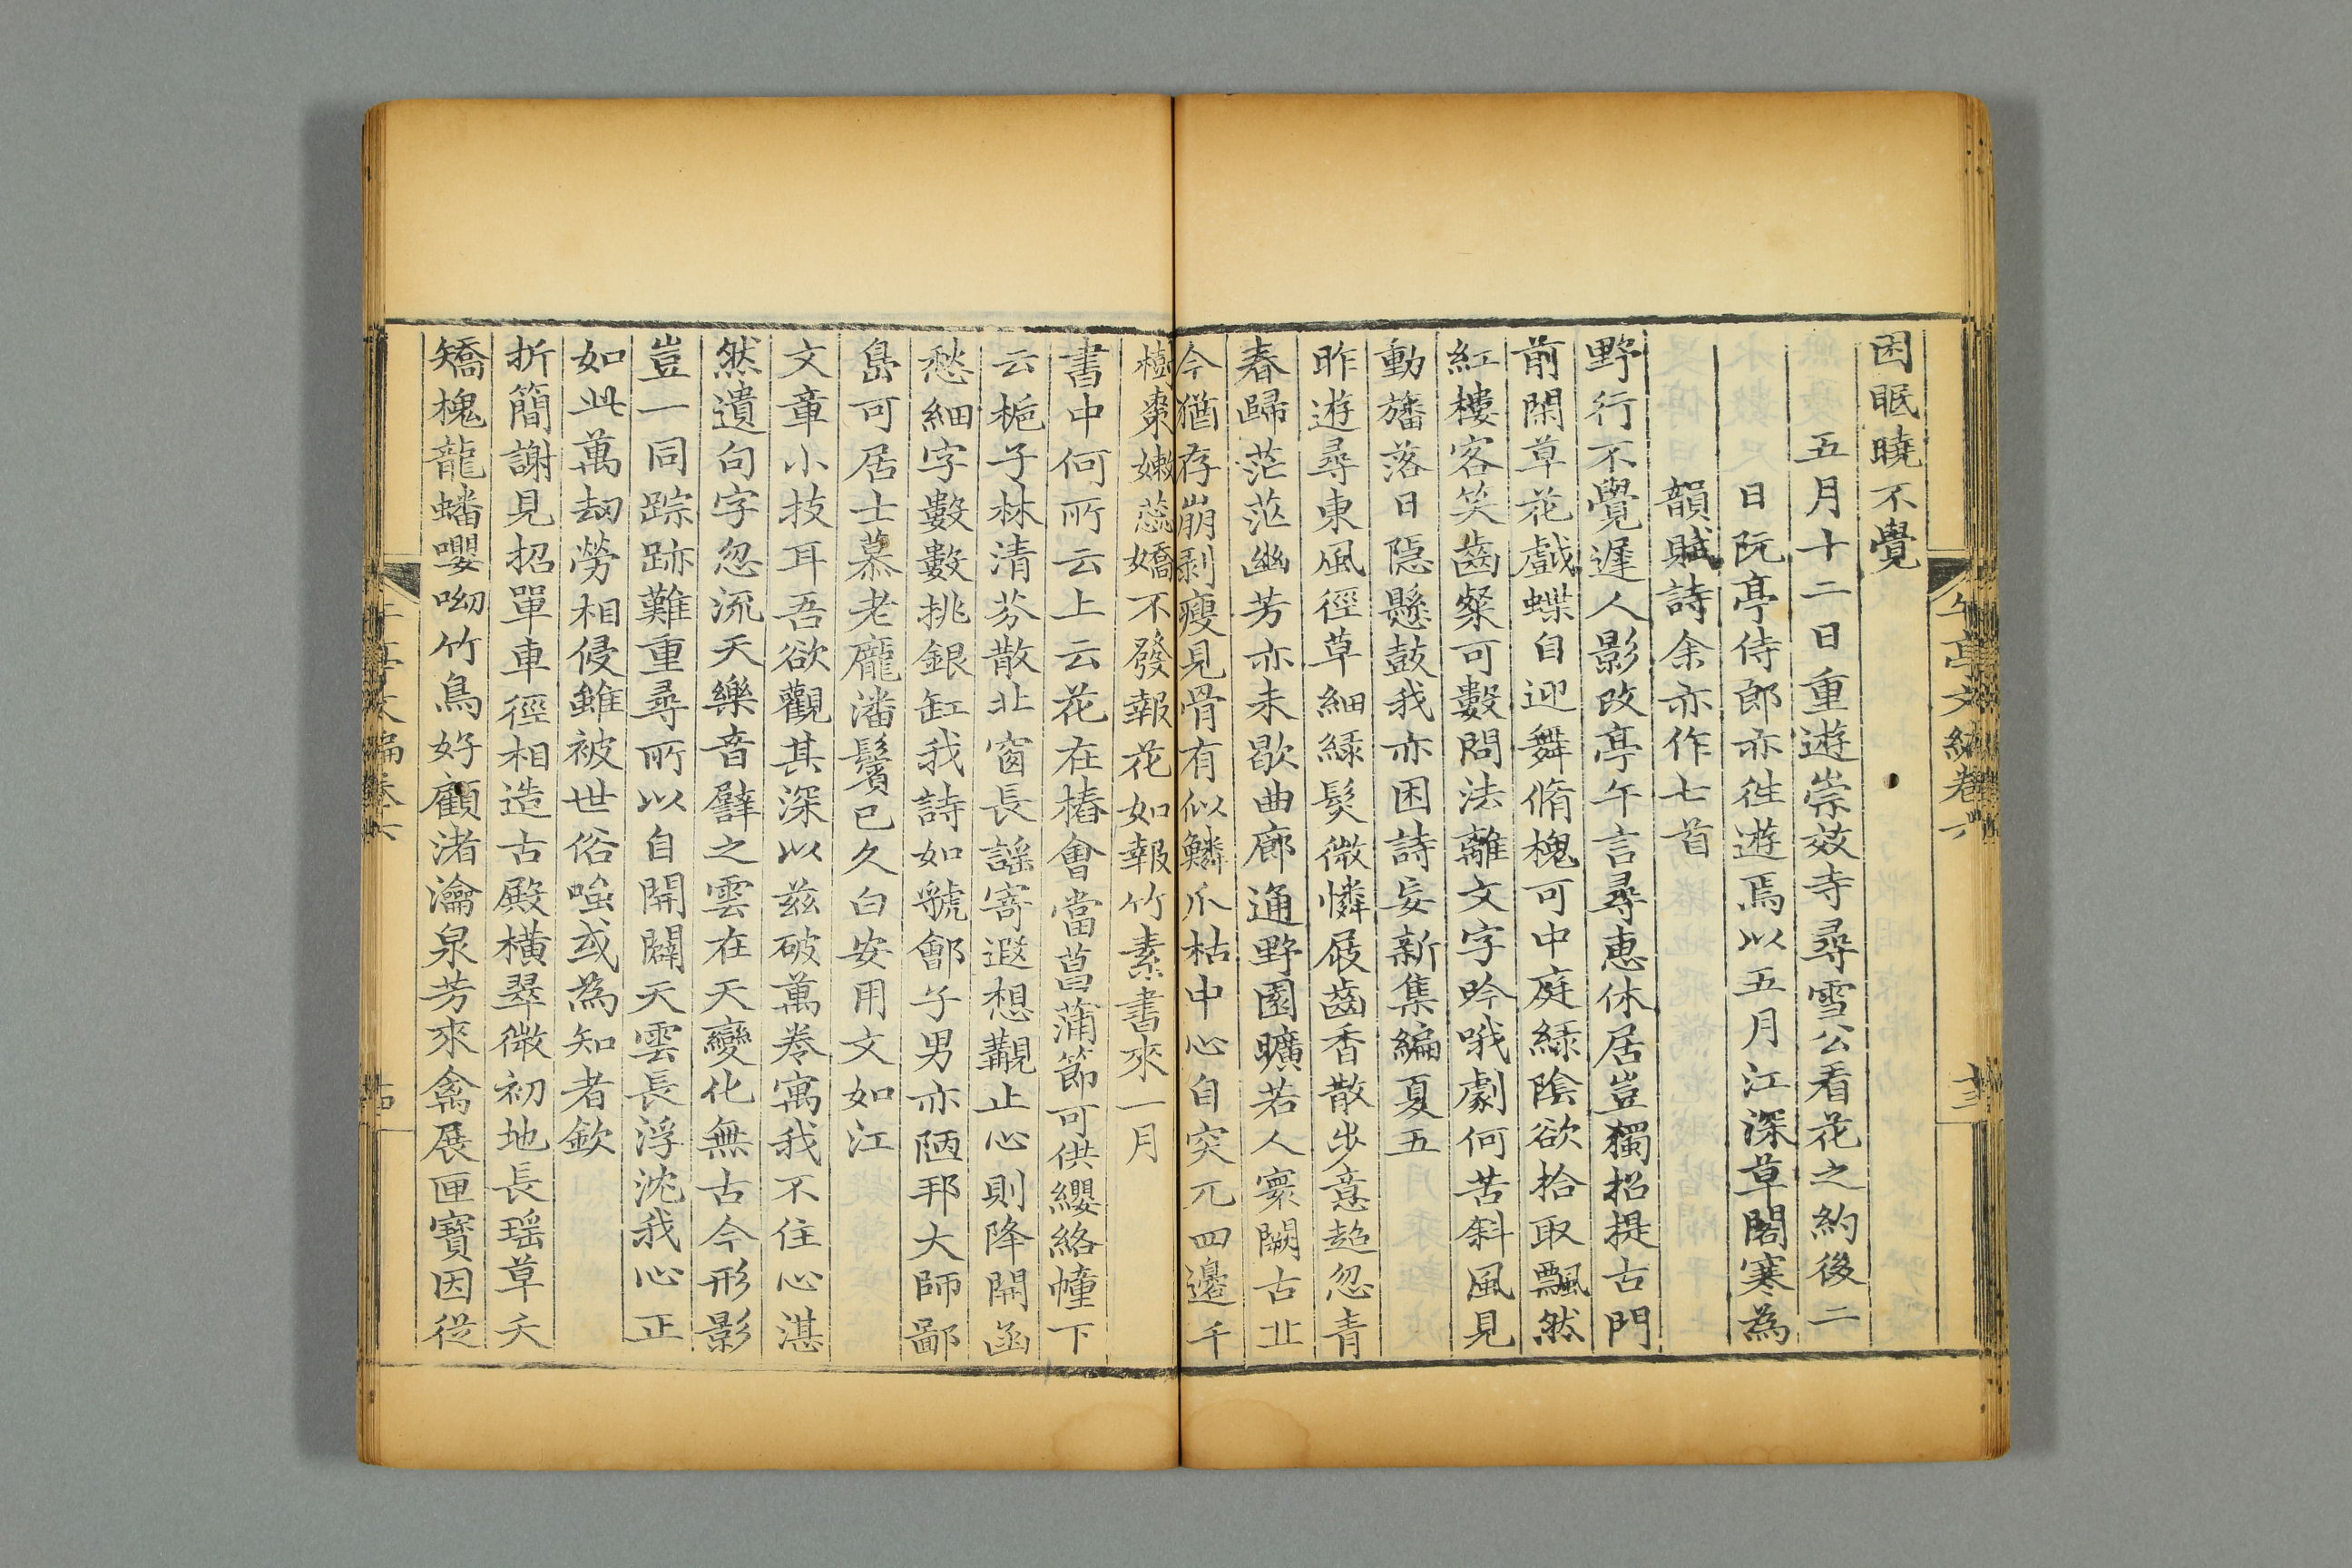 困眠曉不覺
五月十二日重遊崇效寺尋雪公看花之約後二
日阮亭侍郎亦徃遊焉以五月江深草閣寒為
韻賦詩余亦作七首
野行不覺遲人影改亭午言尋惠休居豈獨招提古門
前閑草花戲蝶自迎舞脩槐可中庭綠陰欲拾取飄然
紅樓客笑齒粲可數問法離文字吟哦劇何苦斜風見
動旛落日隠懸鼓我亦困詩妄新集編夏五
昨遊尋東風徑草細綠髮微憐屐齒香散步意超忽青
春歸茫茫幽芳亦未歇曲廊通野園曠若人寰闕古北
今猶存崩剥瘦見骨有似鱗爪枯中心自突兀四邊千
樹棗嫩蕊嬌不發報花如報竹素書來一月
書中何所云上云花在樁會當菖蒲節可供纓絡幢下
云梔子林清芬散北窗長謡寄遐想覯止心則降開函
愁細字數數挑銀缸我詩如虢鄶子男亦陋邦大師鄙
島可居士慕老龐潘鬢已久白安用文如江
文章小技耳吾欲觀其深以兹破萬卷寓我不住心湛
然遺句字忽流天樂音譬之雲在天變化無古今形影
豈一同踪跡難重尋所以自開闢天雲長浮沈我心正
如此萬劫勞相侵雖被世俗嗤或為知者欽
折簡謝見招單車徑相造古殿橫翠微初地長瑶草夭
矯槐龍蟠嚶呦竹鳥好顧渚瀹泉芳來禽展匣寶因從
午亭文編卷六
十三
午亭文編卷六
十四